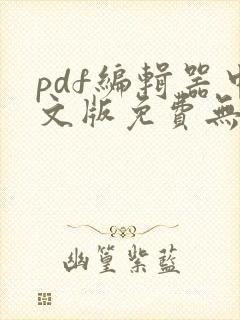 pdf編輯器中
文版免費無
幽篁紫藍